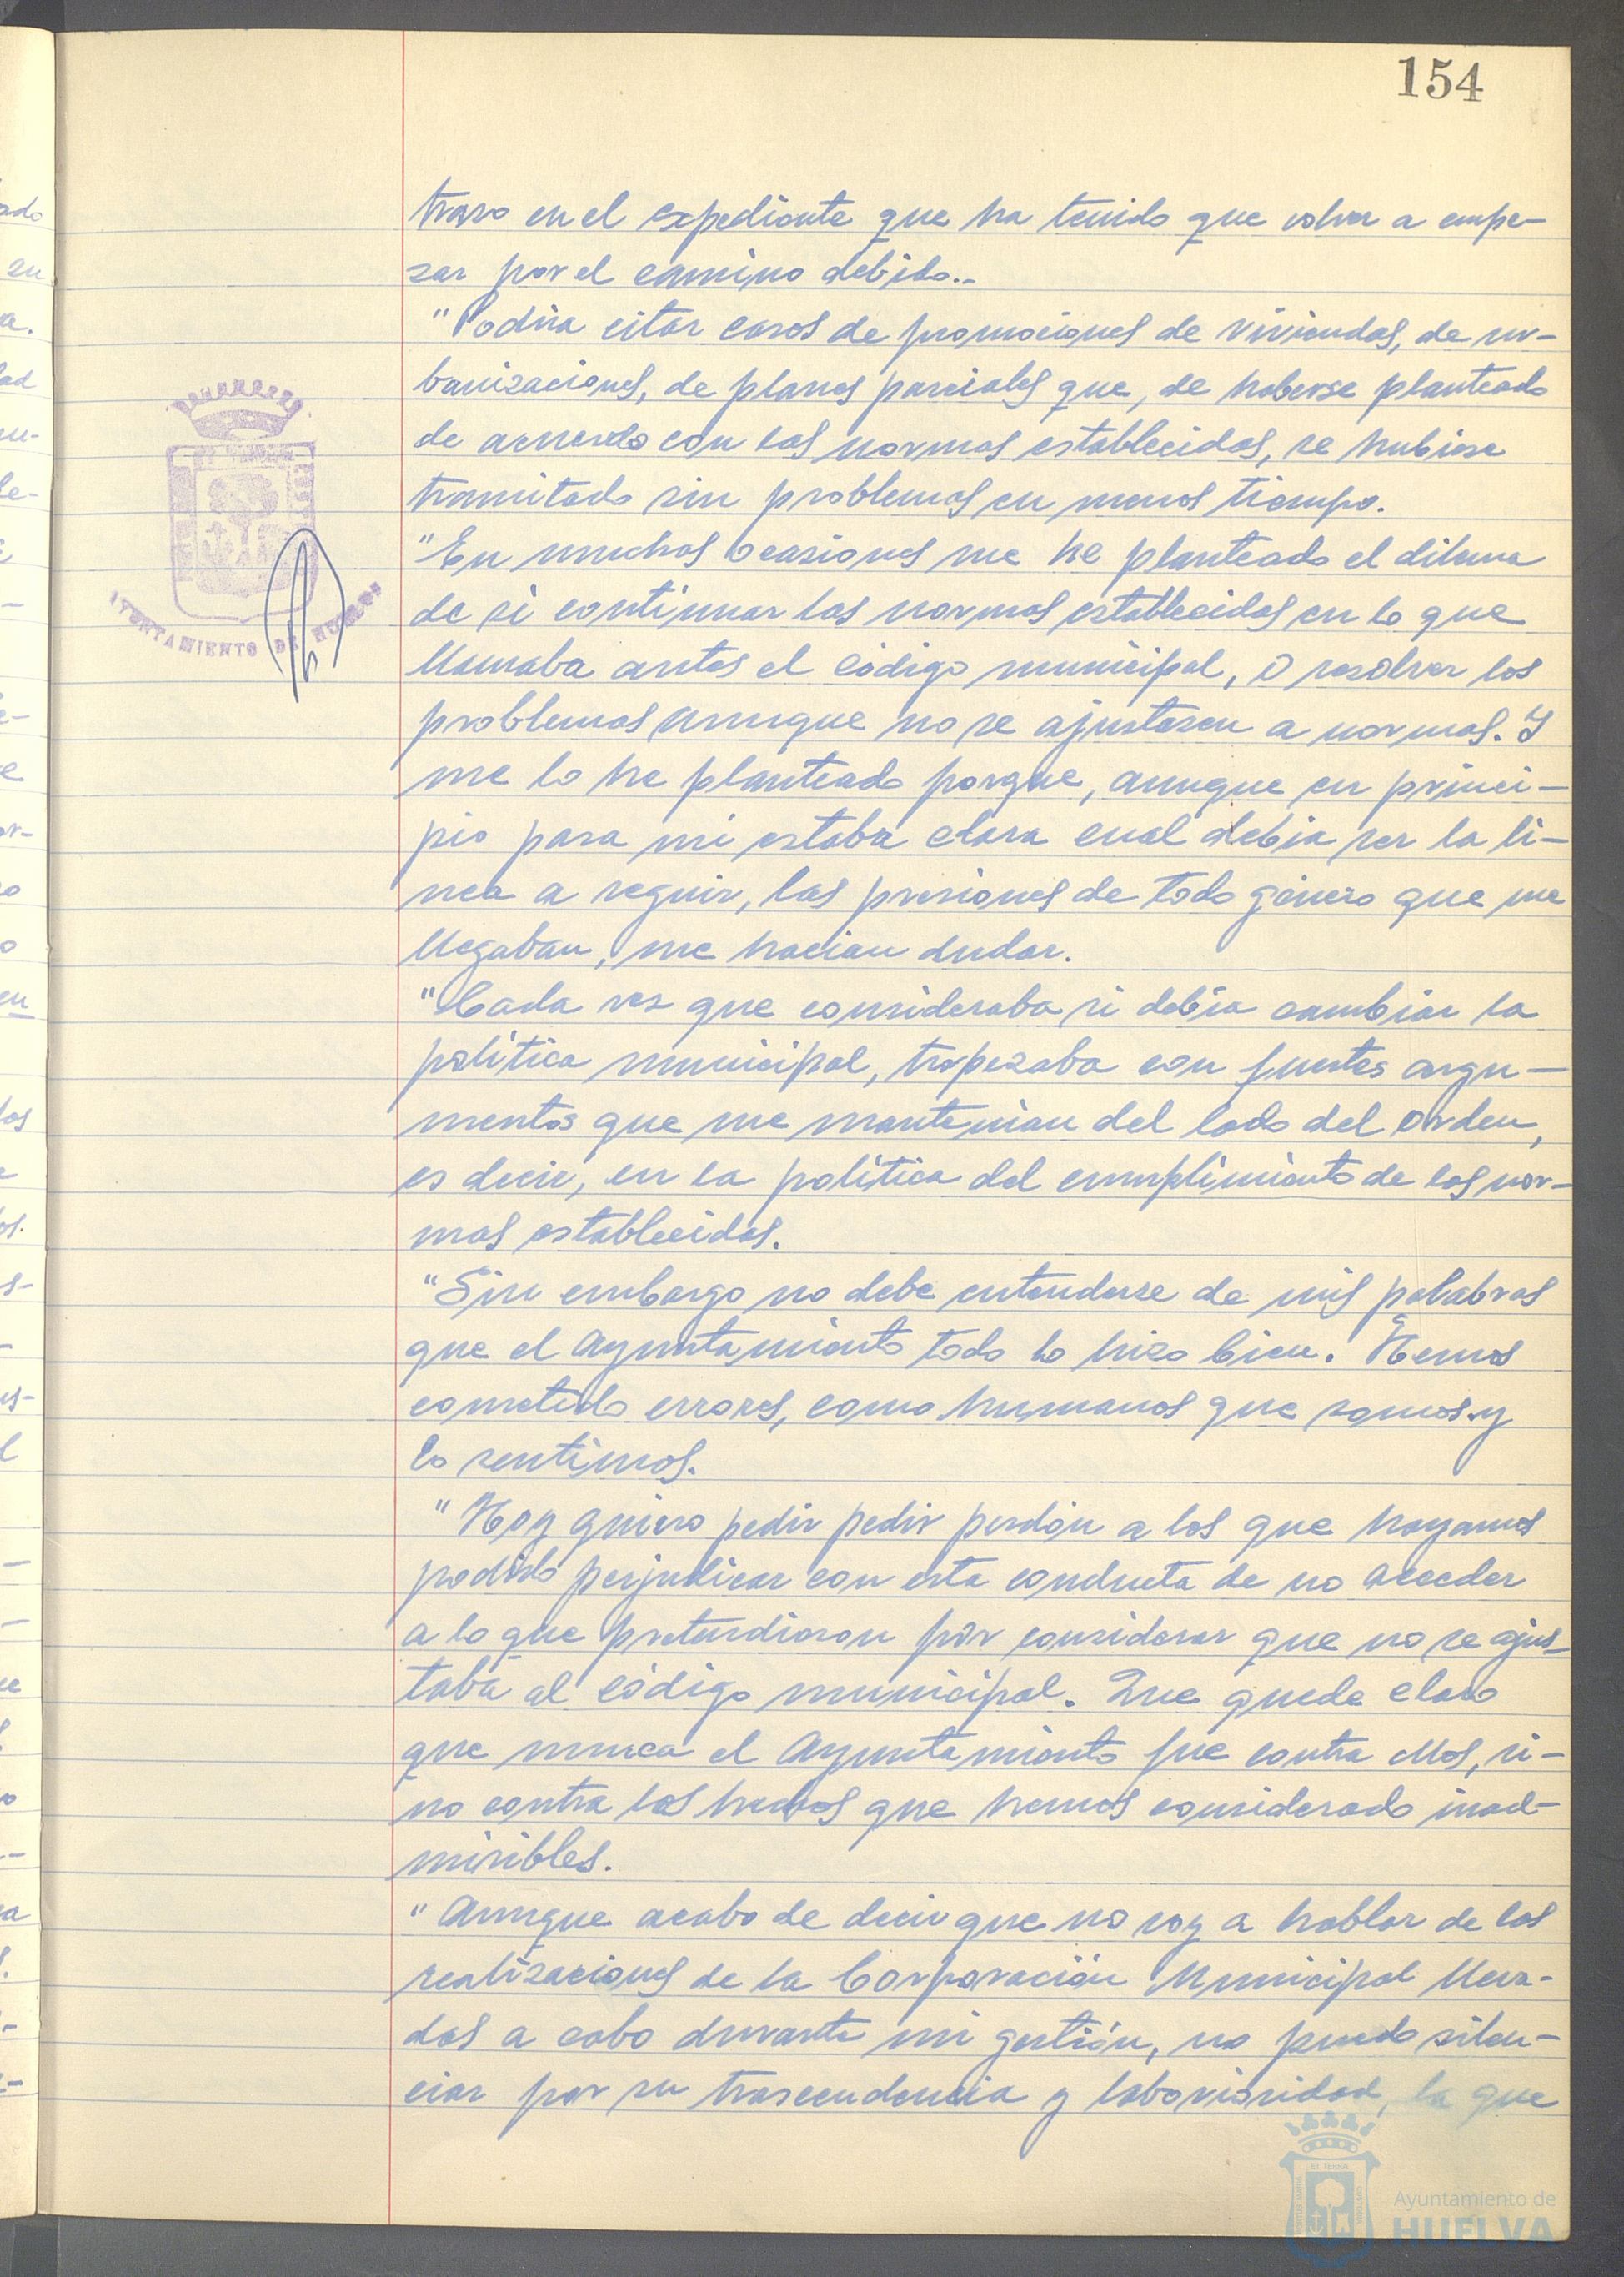 154
traso en el expediente que ha tenido que volver a empe-
zar por el camino debido..-
"Podría citar casos de promociones de viviendas, de ur-
banizaciones, de planes parciales que, de haberse planteado
de acuerdo con las normas establecidas, se hubiese
tramitado sin problemas en menos tiempo.
"En muchas ocasiones me he planteado el dilema
de si continuar las normas establecidas en lo que
llamaba antes el código municipal, o resolver los
problemas aunque no se ajustasen a normas. Y
me lo he planteado porque, aunque en princi-
pio para mi estaba clara cual debía ser la lí-
nea a seguir, las presiones de todo género que me
llegaban, me hacían dudar.
"Cada vez que consideraba si debía cambiar la
política municipal, tropezaba con fuertes argu-
mentos que me mantenían del lado del orden,
es decir, en la política del cumplimiento de las nor-
mas establecidas.
"Sin embargo no debe entenderse de mis palabras
que el Ayuntamiento todo lo hizo bien. Hemos
cometido errores, como humanos que somos y
lo sentimos.
"Hoy quiero pedir pedir perdón a los que hayamos
podido perjudicar con esta conducta de no acceder
a lo que pretendieron por considerar que no se ajus-
taba al código municipal. Que quede claro
que nunca el Ayuntamiento fue contra ellos, si-
no contra los hechos que hemos considerado inad-
misibles.
"Aunque acabo de decir que no voy a hablar de las
realizaciones de la Corporación Municipal lleva-
das a cabo durante mi gestión, no puedo silen-
ciar por su trascendencia y laboriosidad, la que
AYUNTAMIENTO DE HUELVA
Ayuntamiento de
HUELVA